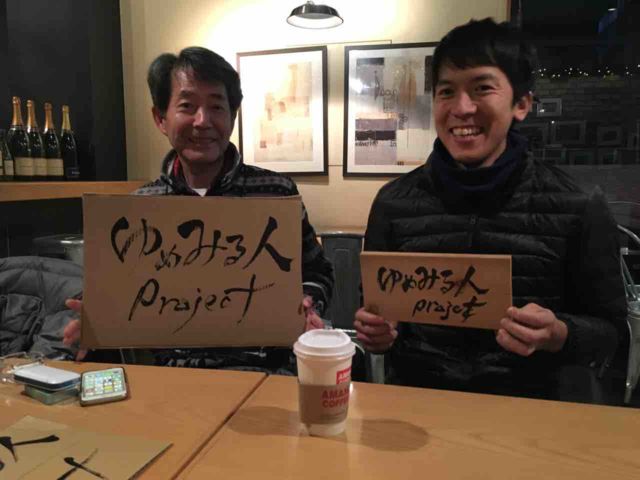 ゆめみる人
project
ゆめみる人
project
AMAN
AMAN
COFFE